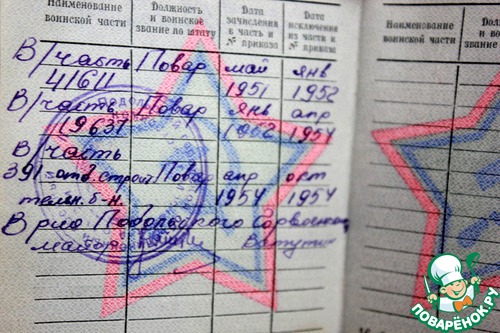 Наименование воинской части
Должность и воинское звание по штату
Дата зачисления в часть и № приказа
Дата исключения из части и № приказа
В/часть Повар май янв
41611 1951 1952
В/часть Повар янв апр
19637 1952 1954
В/часть
391 отд. строи Повар апр окт
тельн. б-н. 1954 1954
Врио Подольского Горвоенком
майор Ватутин
Наименование воинской части
ПОВАРЁНОК.РУ